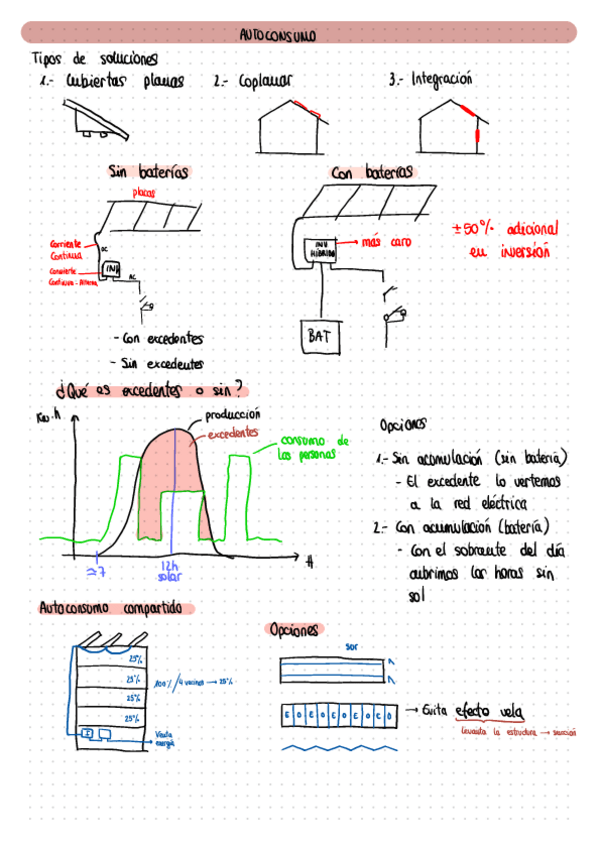 AUTOCONSUMO
Tipos de soluciones
1.- Cubiertas planas 2.- Coplanar 3.- Integración
Sin baterías
Con baterías
placas
Corriente
Continua
DC
Convierte
Continua - Alterna
INV
AC
INV
HÍBRIDO
más caro
±50% adicional
en inversión
BAT
- Con excedentes
- Sin excedentes
¿Qué es excedentes o sin?
Kw.h
producción
excedentes
consumo de
las personas
≃7
12h
solar
H
Opciones
1.- Sin acumulación (sin batería)
- El excedente lo vertemos
a la red eléctrica
2.- Con acumulación (batería)
- Con el sobrante del día
cubrimos las horas sin
sol
Autoconsumo compartido
25%
25%
25%
25%
100% / 4 vecinos → 25%
energía
Opciones
sor
E O E O E O E O
→ Evita efecto vela
levanta la estructura → succión